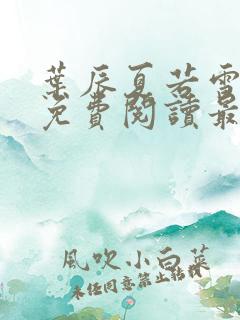 葉辰夏若雪
免費閱讀最
風吹小白菜
未經同意禁止轉載